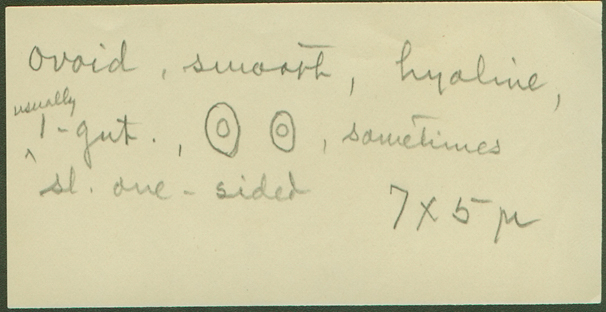 ovoid, smooth, hyaline,
usually
^ 1-gut., sometimes
sl. one-sided 7 x 5 µ